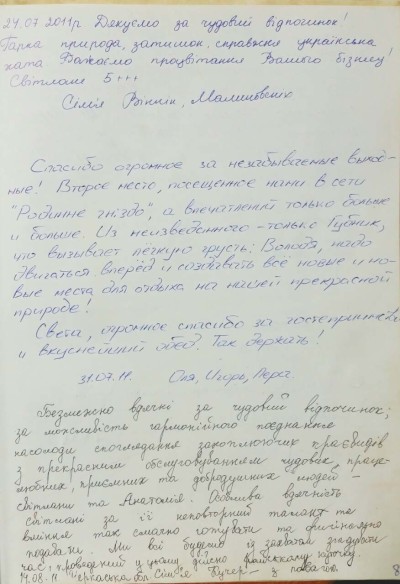 24.07.2011р Дякуємо за чудовий відпочинок!
Гарна природа, затишок, справжня українська
хата Бажаємо процвітання Вашого бізнесу!
Світлане 5+++
Сімія Вінник, Малиновських
Спасибо огромное за незабываемые выход-
ные! Второе место, посещенное нами в сети
"Родинне гніздо", а впечатлений только больше
и больше. Из неизведанного - только Губник,
что вызывает лёгкую грусть; Володя, надо
двигаться вперёд и создавать всё новые и но-
вые места для отдыха на нашей прекрасной
природе!
Света, огромное спасибо за гостеприимство
и вкуснейший обед. Так держать!
31.07.11. Оля, Игорь, Лера.
Безмежно вдячні за чудовий відпочинок;
за можливість гармонійного поєднання
насолоди споглядання захоплюючих краєвидів
з прекрасним обслуговуванням чудових, праце-
любних, приємних та добродушних людей -
світлани та Анатолія. Особлива вдячність
світлані за її неповторний талант та
вміння так смачно готувати та
подавати. Ми всі будемо із захватом згадувати
час, проведений у цьому дійсно райському куточку.
14.08.11 Черкаська обл. Сім'я Кучер - з повагою
8